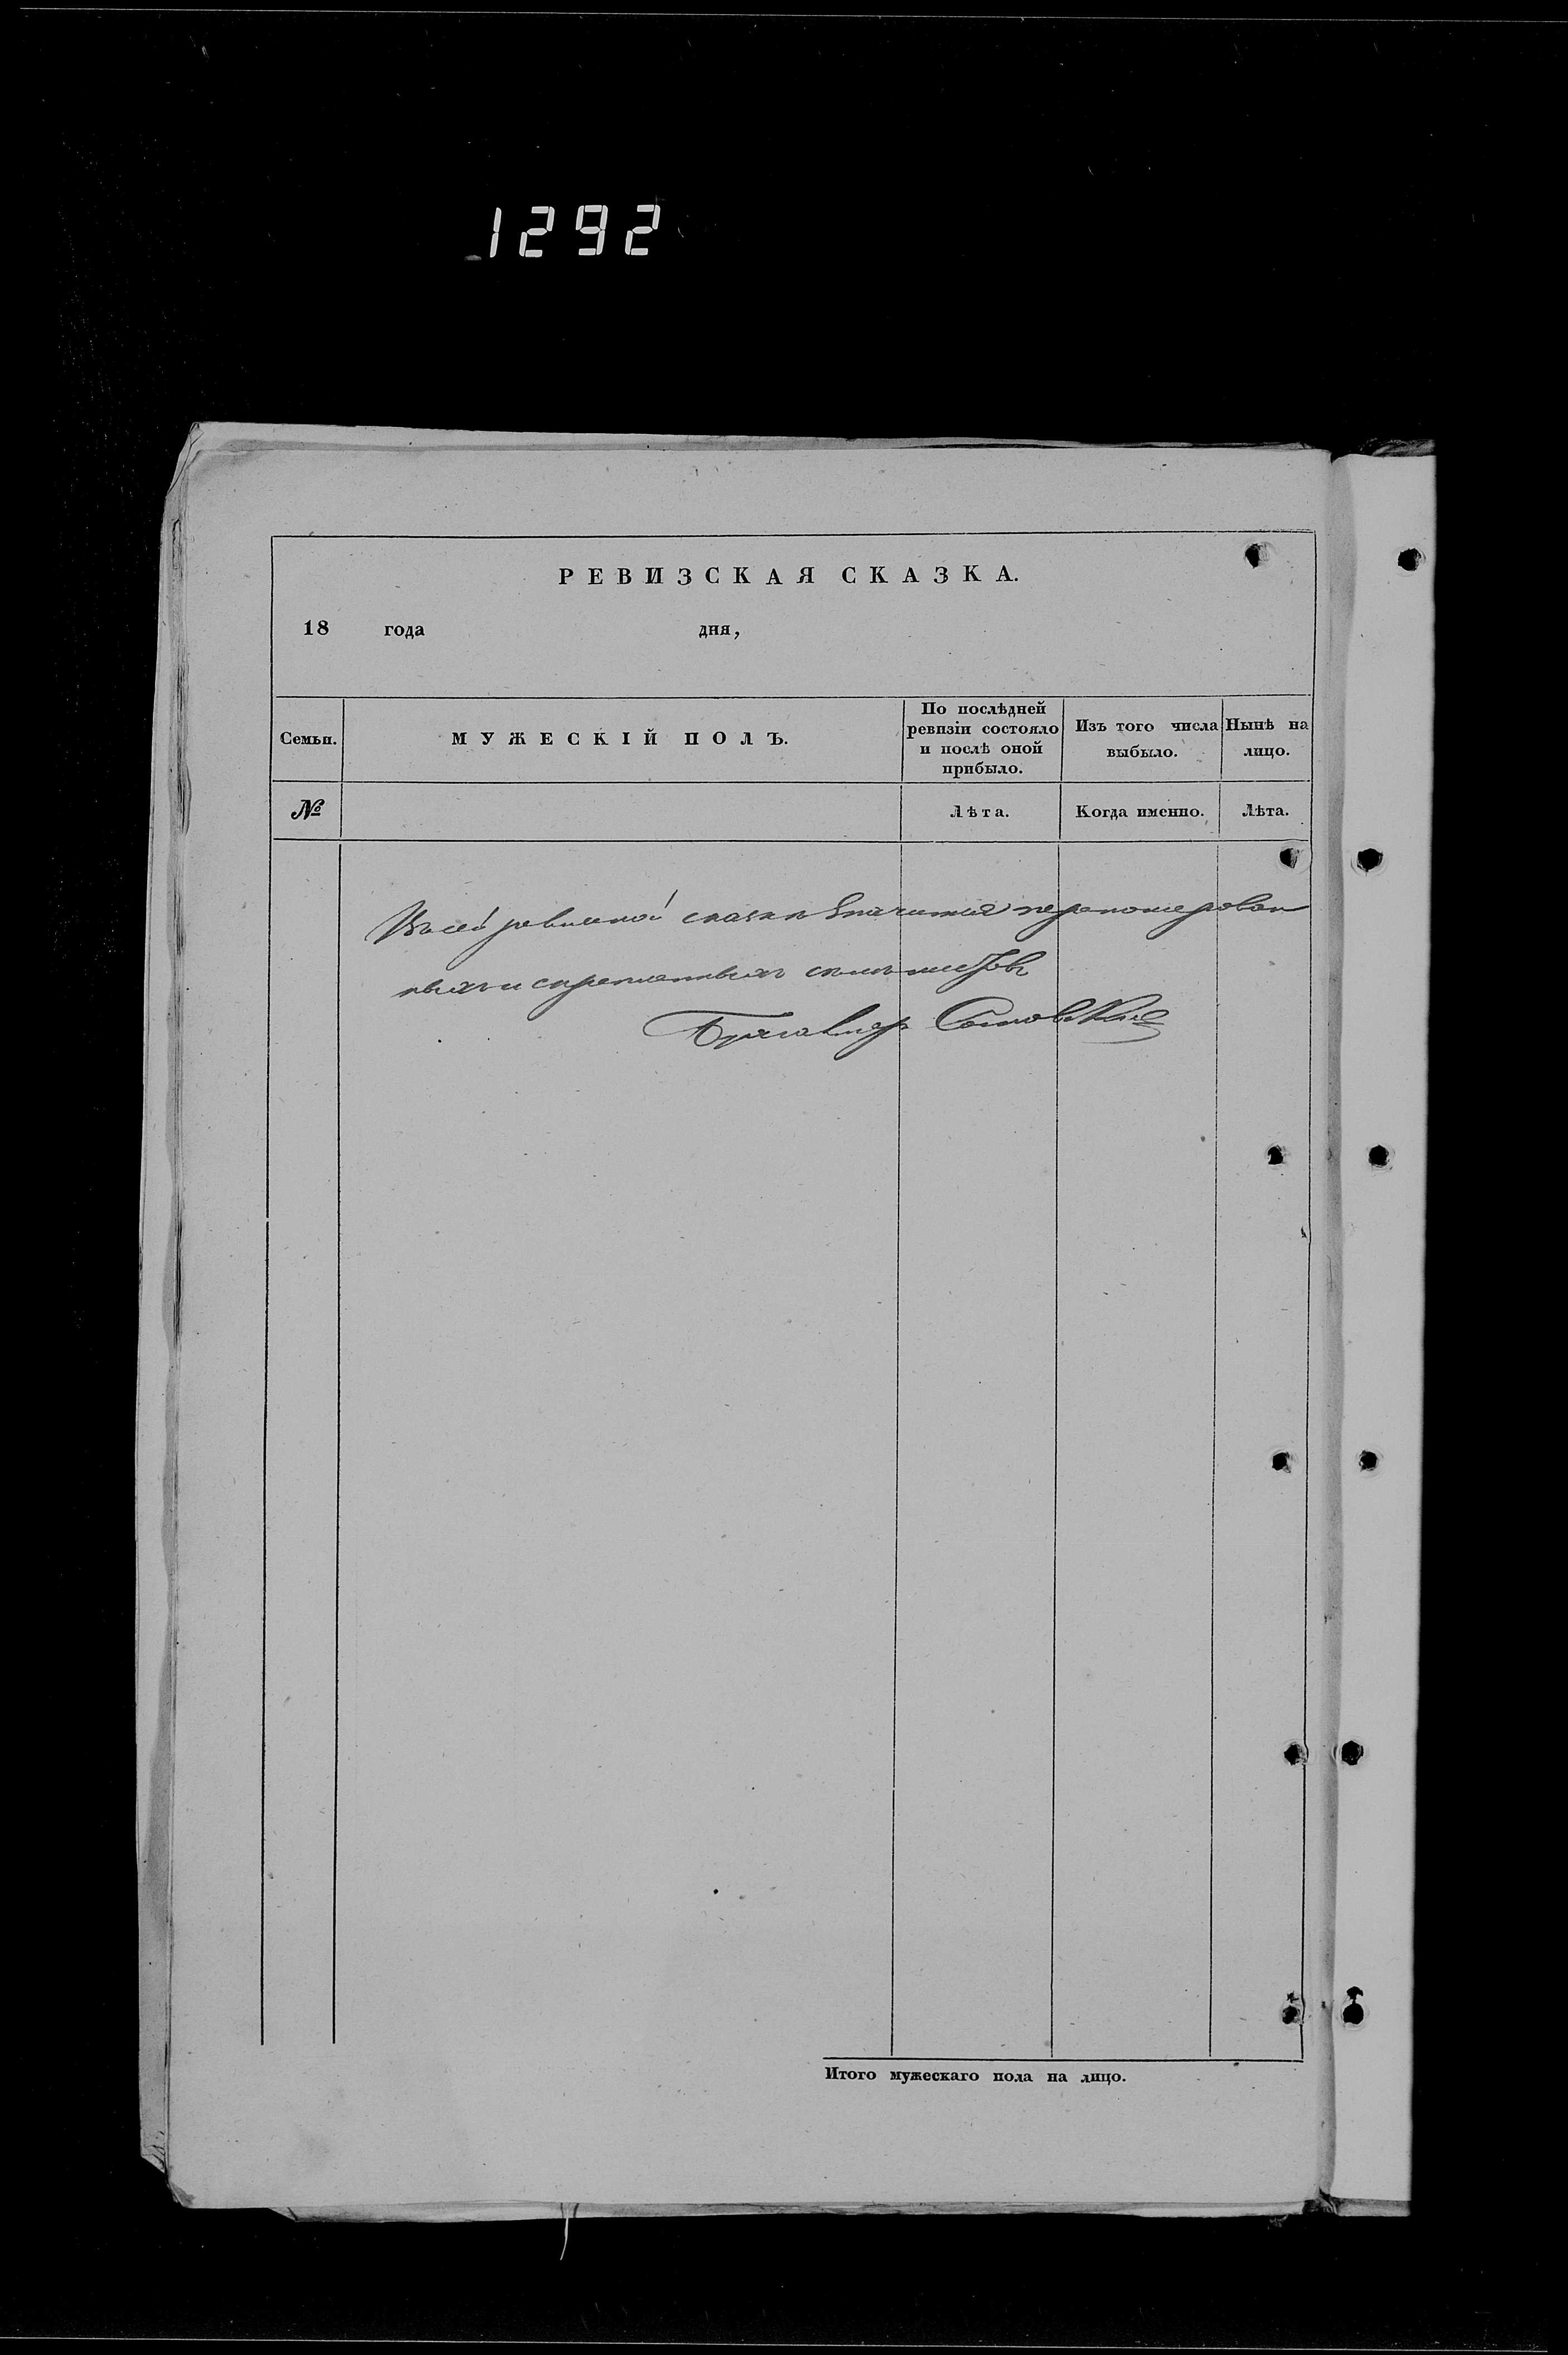 1292
РЕВИЗСКАЯ СКАЗКА.
18 года дня,
Семьи.
МУЖЕСКІЙ ПОЛЪ.
По послѣдней
ревизіи состояло
и послѣ оной
прибыло.
Изъ того числа
выбыло.
Нынѣ на
лицо.
№
Лѣта.
Когда именно.
Лѣта.
Въ сей ревизской сказки значится перономерован
ныхъ и скрепленныхъ семь листовъ
Итого мужескаго пола на лицо.